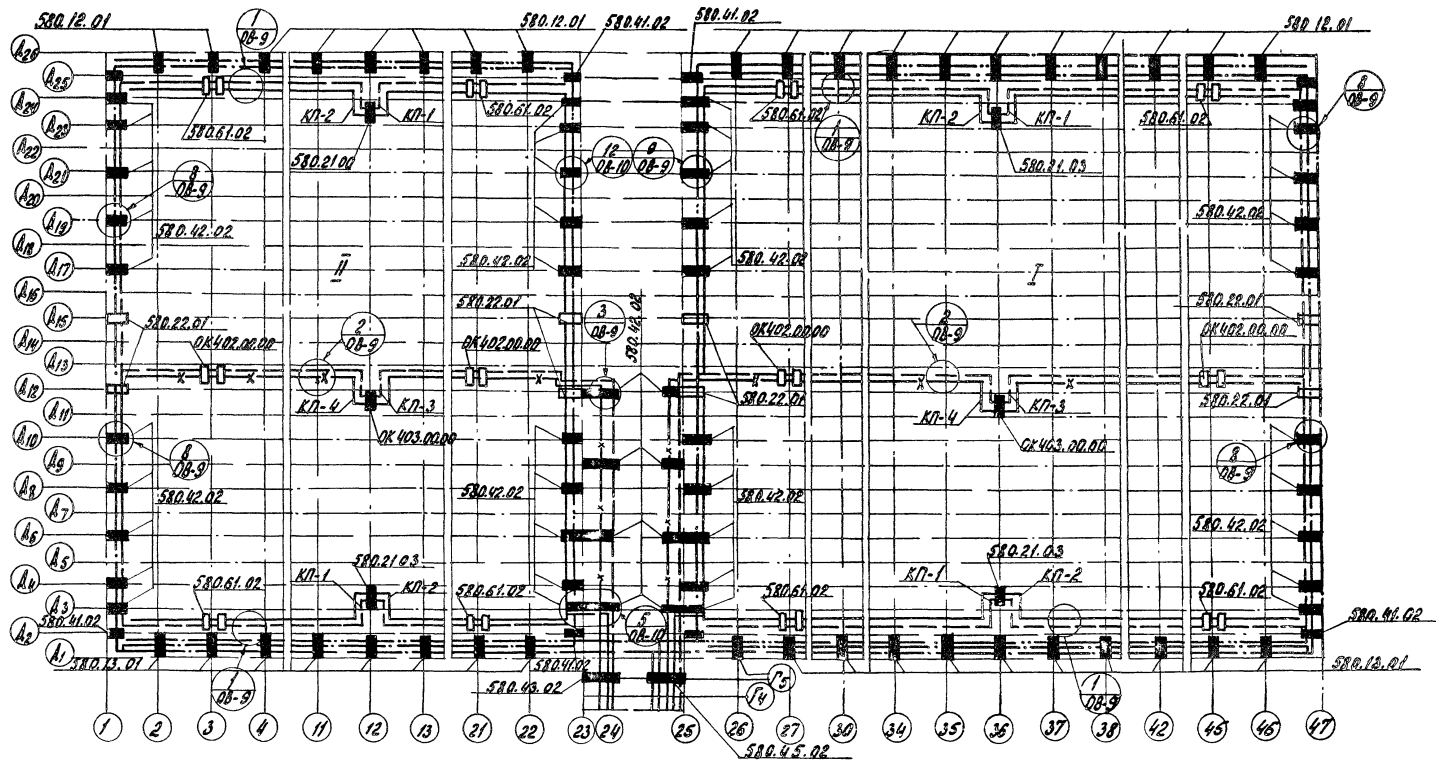 580.12.01
1
ОВ-9
580.12.01
580.41.02
580.41.02
580.12.01
А26
А25
А24
А23
А22
А21
А20
А19
А18
А17
А16
А15
А14
А13
А12
А11
А10
А9
А8
А7
А6
А5
А4
А3
А2
А1
580.61.02
КП-2
КП-1
580.21.00
580.61.02
580.61.02
1
ОВ-9
КП-2
КП-1
580.21.03
580.61.02
8
ОВ-9
8
ОВ-9
12
ОВ-10
9
ОВ-9
580.42.02
580.42.02
580.42.02
580.42.02
II
I
580.22.01
580.22.01
3
ОВ-9
580.42.02
580.22.01
ОК402.00.00
2
ОВ-9
ОК402.00.00
ОК402.00.00
2
ОВ-9
ОК402.00.00
КП-4
КП-3
ОК403.00.00
580.22.01
КП-4
КП-3
ОК403.00.00
580.22.01
8
ОВ-9
8
ОВ-9
580.42.02
580.42.02
580.42.02
580.42.02
580.61.02
КП-1
580.21.03
КП-2
580.61.02
580.61.02
КП-1
580.21.03
КП-2
580.61.02
580.41.02
580.41.02
580.13.01
1
ОВ-9
580.41.02
5
ОВ-10
580.43.02
Г5
Г4
1
ОВ-9
580.45.02
1
2
3
4
11
12
13
21
22
23
24
25
26
27
30
34
35
36
37
38
42
45
46
47